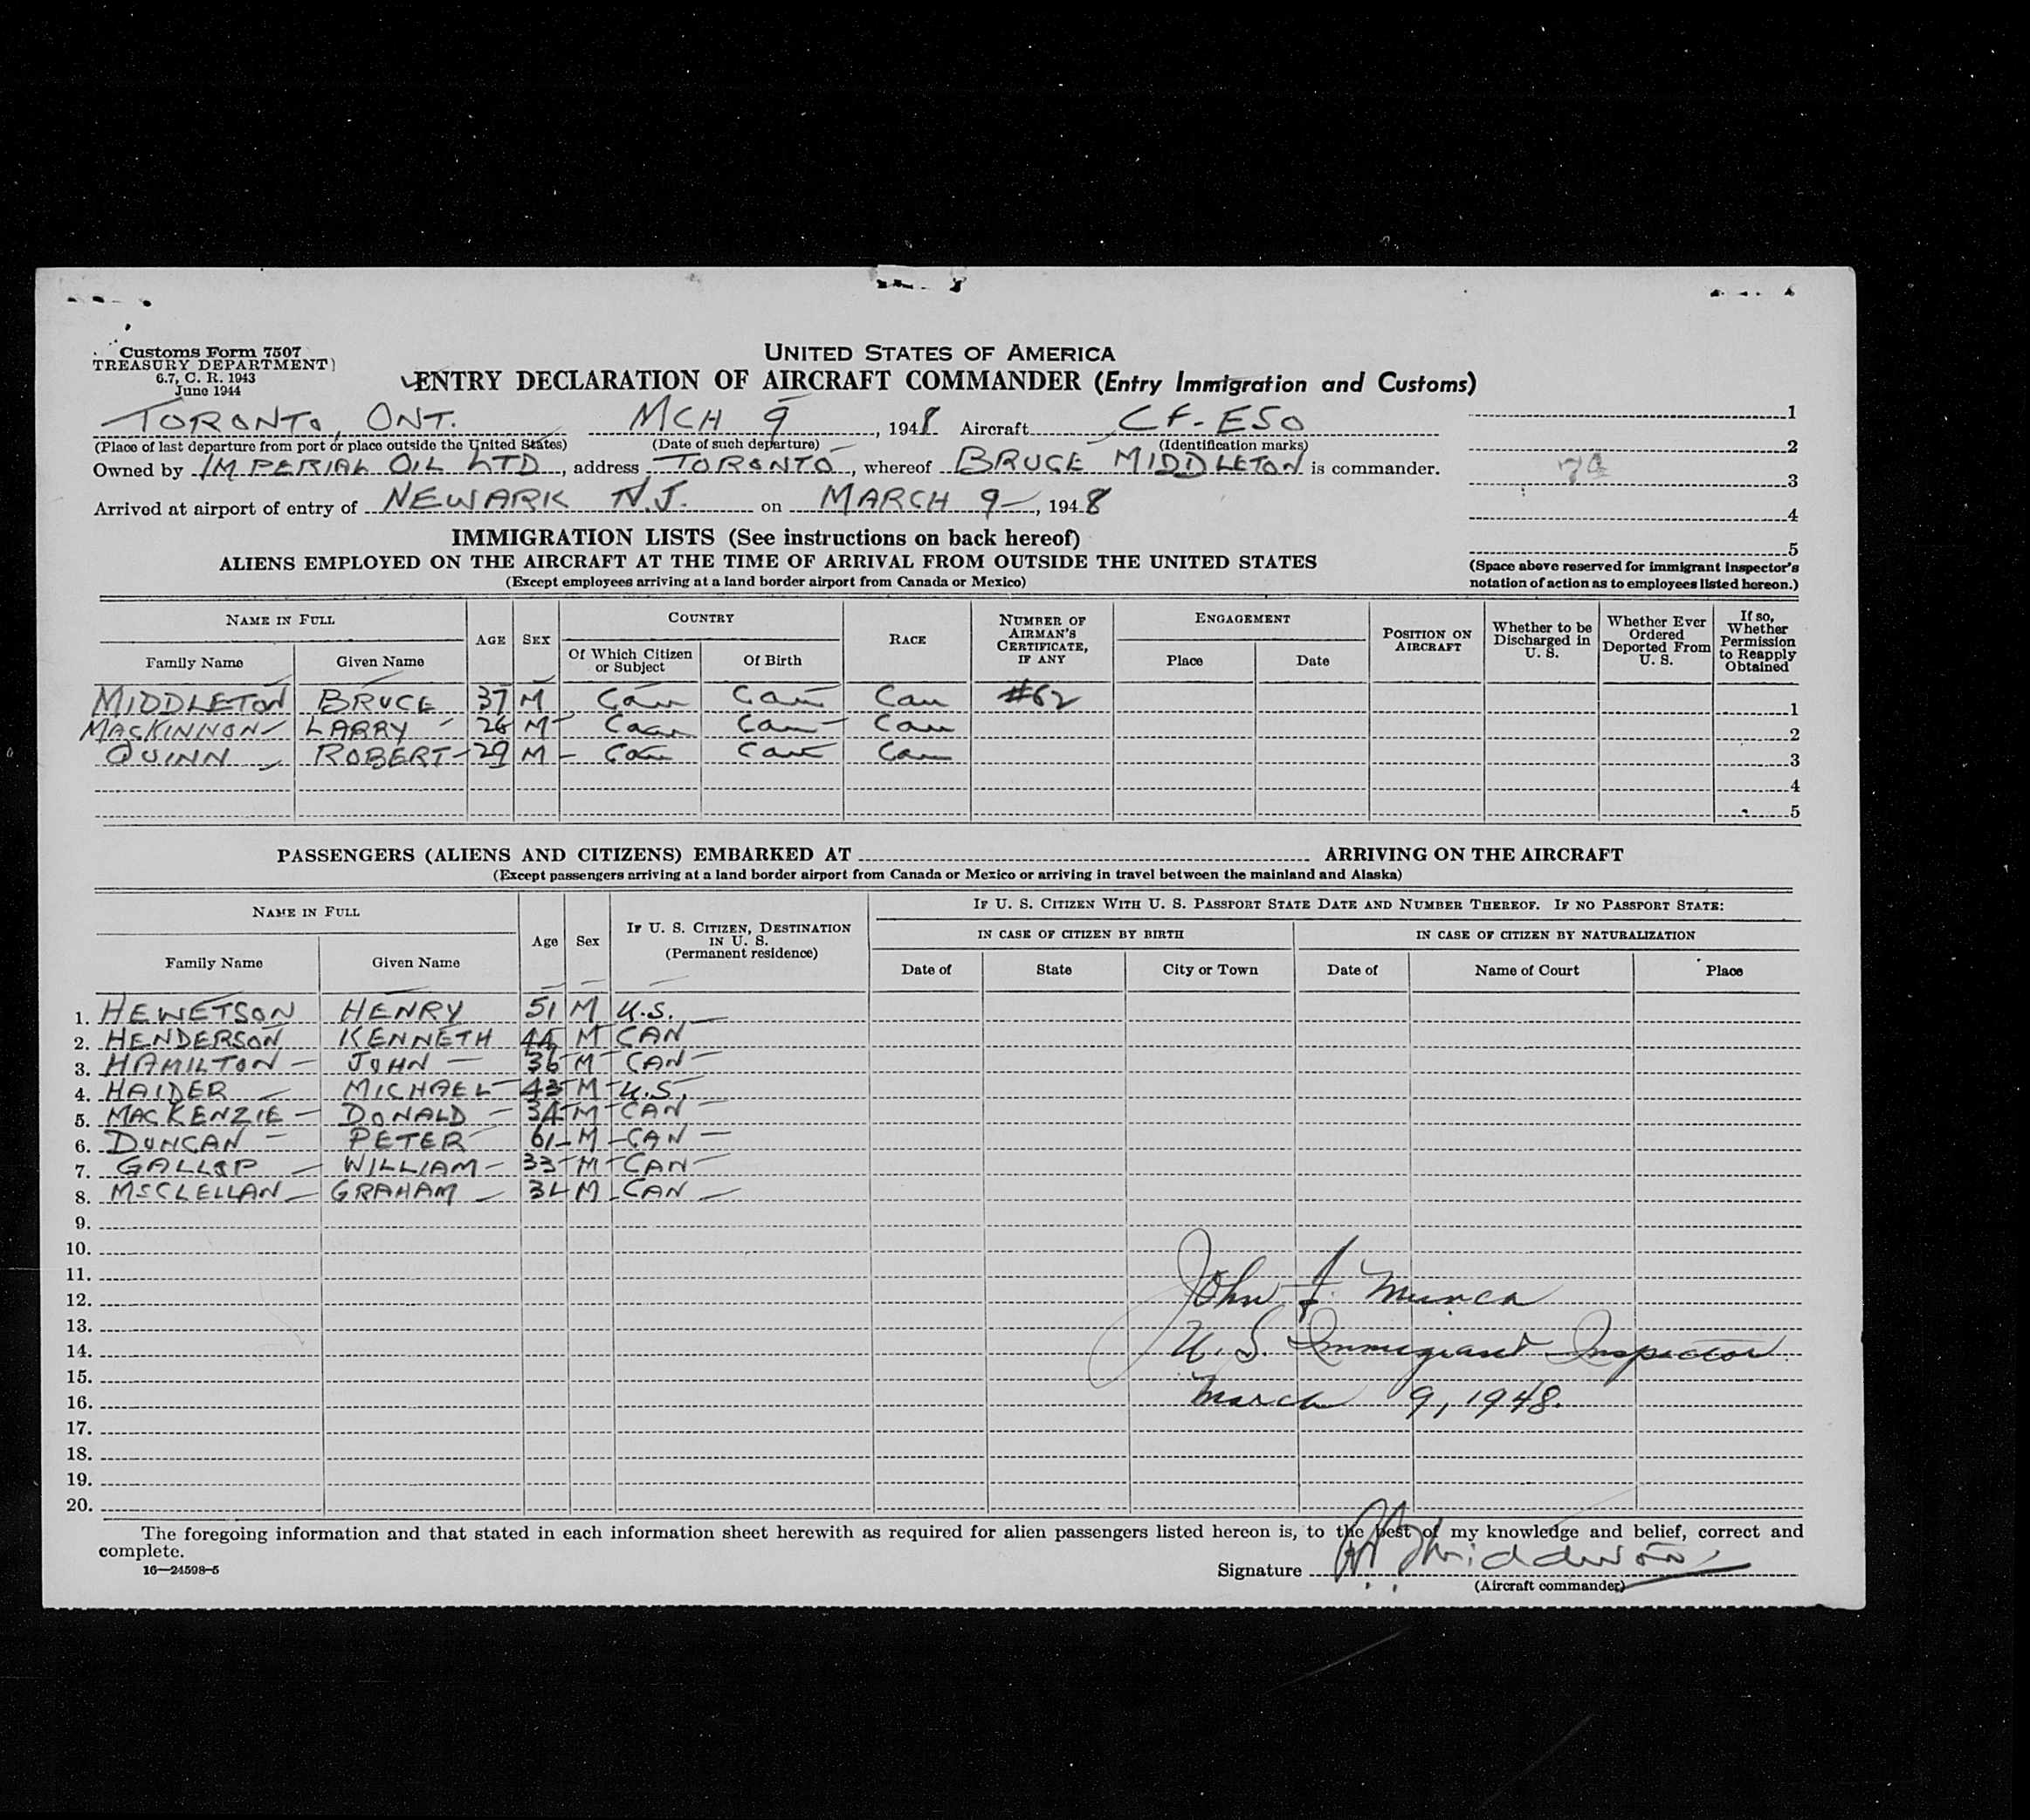 Customs Form 7507
TREASURY DEPARTMENT
6.7, C. R. 1943
June 1944
UNITED STATES OF AMERICA
ENTRY DECLARATION OF AIRCRAFT COMMANDER (Entry Immigration and Customs)
TORONTO, ONT. MCH 9, 1948 Aircraft CF-ESO
(Place of last departure from port or place outside the United States) (Date of such departure) (Identification marks)
Owned by IMPERIAL OIL LTD, address TORONTO, whereof BRUCE MIDDLETON is commander.
Arrived at airport of entry of NEWARK N.J. on MARCH 9, 1948
1
2
3
4
5
(Space above reserved for immigrant inspector's
notation of action as to employees listed hereon.)
IMMIGRATION LISTS (See instructions on back hereof)
ALIENS EMPLOYED ON THE AIRCRAFT AT THE TIME OF ARRIVAL FROM OUTSIDE THE UNITED STATES
(Except employees arriving at a land border airport from Canada or Mexico)
NAME IN FULL
Family Name Given Name
AGE SEX
COUNTRY
Of Which Citizen or Subject Of Birth
RACE
NUMBER OF AIRMAN'S CERTIFICATE, IF ANY
ENGAGEMENT
Place Date
POSITION ON AIRCRAFT
Whether to be Discharged in U. S.
Whether Ever Ordered Deported From U. S.
If so, Whether Permission to Reapply Obtained
MIDDLETON BRUCE 37 M Can Can Can #62 1
MACKINNON LARRY 26 M Can Can Can 2
QUINN ROBERT 29 M Can Can Can 3
4
5
PASSENGERS (ALIENS AND CITIZENS) EMBARKED AT ARRIVING ON THE AIRCRAFT
(Except passengers arriving at a land border airport from Canada or Mexico or arriving in travel between the mainland and Alaska)
NAME IN FULL
Family Name Given Name
Age Sex
IF U. S. CITIZEN, DESTINATION IN U. S. (Permanent residence)
IF U. S. CITIZEN WITH U. S. PASSPORT STATE DATE AND NUMBER THEREOF. IF NO PASSPORT STATE:
IN CASE OF CITIZEN BY BIRTH IN CASE OF CITIZEN BY NATURALIZATION
Date of State City or Town Date of Name of Court Place
1. HEWETSON HENRY 51 M U.S.
2. HENDERSON KENNETH M CAN
3. HAMILTON JOHN 36 M CAN
4. HAIDER MICHAEL 43 M U.S.
5. MACKENZIE DONALD 34 M CAN
6. DUNCAN PETER 61 M CAN
7. GALLOP WILLIAM 33 M CAN
8. MCCLELLAN GRAHAM M CAN
9.
10.
11.
12.
13.
14.
15.
16.
17.
18.
19.
20.
John J.
U. S. Immigrant Inspector
March 9, 1948.
The foregoing information and that stated in each information sheet herewith as required for alien passengers listed hereon is, to the best of my knowledge and belief, correct and
complete.
16—24598-5
Signature Middleton
(Aircraft commander)